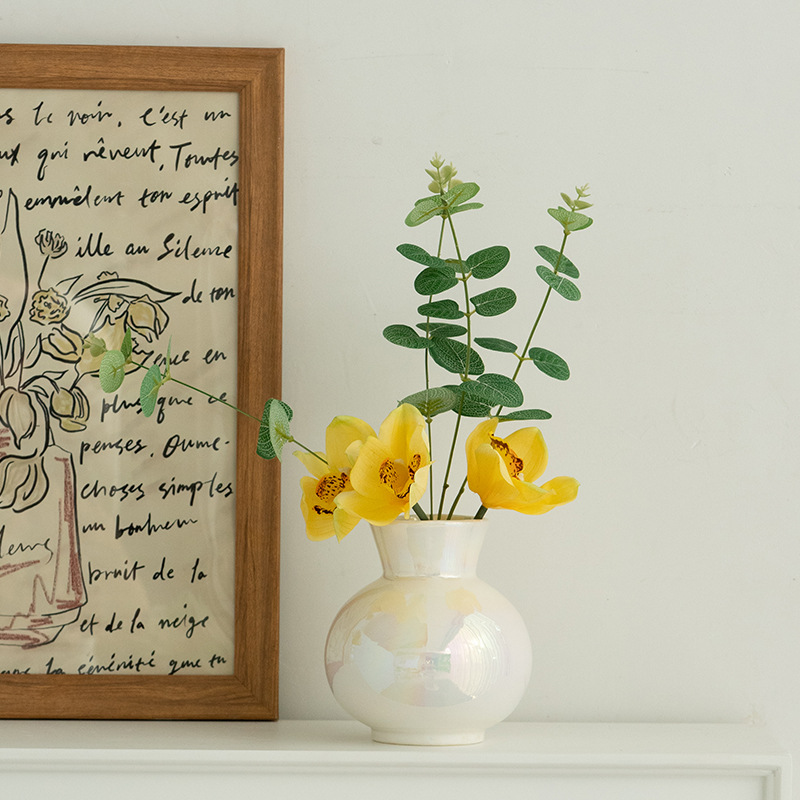 le noir, c'est un
qui rêvent, Toutes
emmêlent ton esprit
ille au Silence
de ton
en
plus que ce
penses. Oume-
choses simples
un bonheur
bruit de la
et de la neige
la sérénité que tu